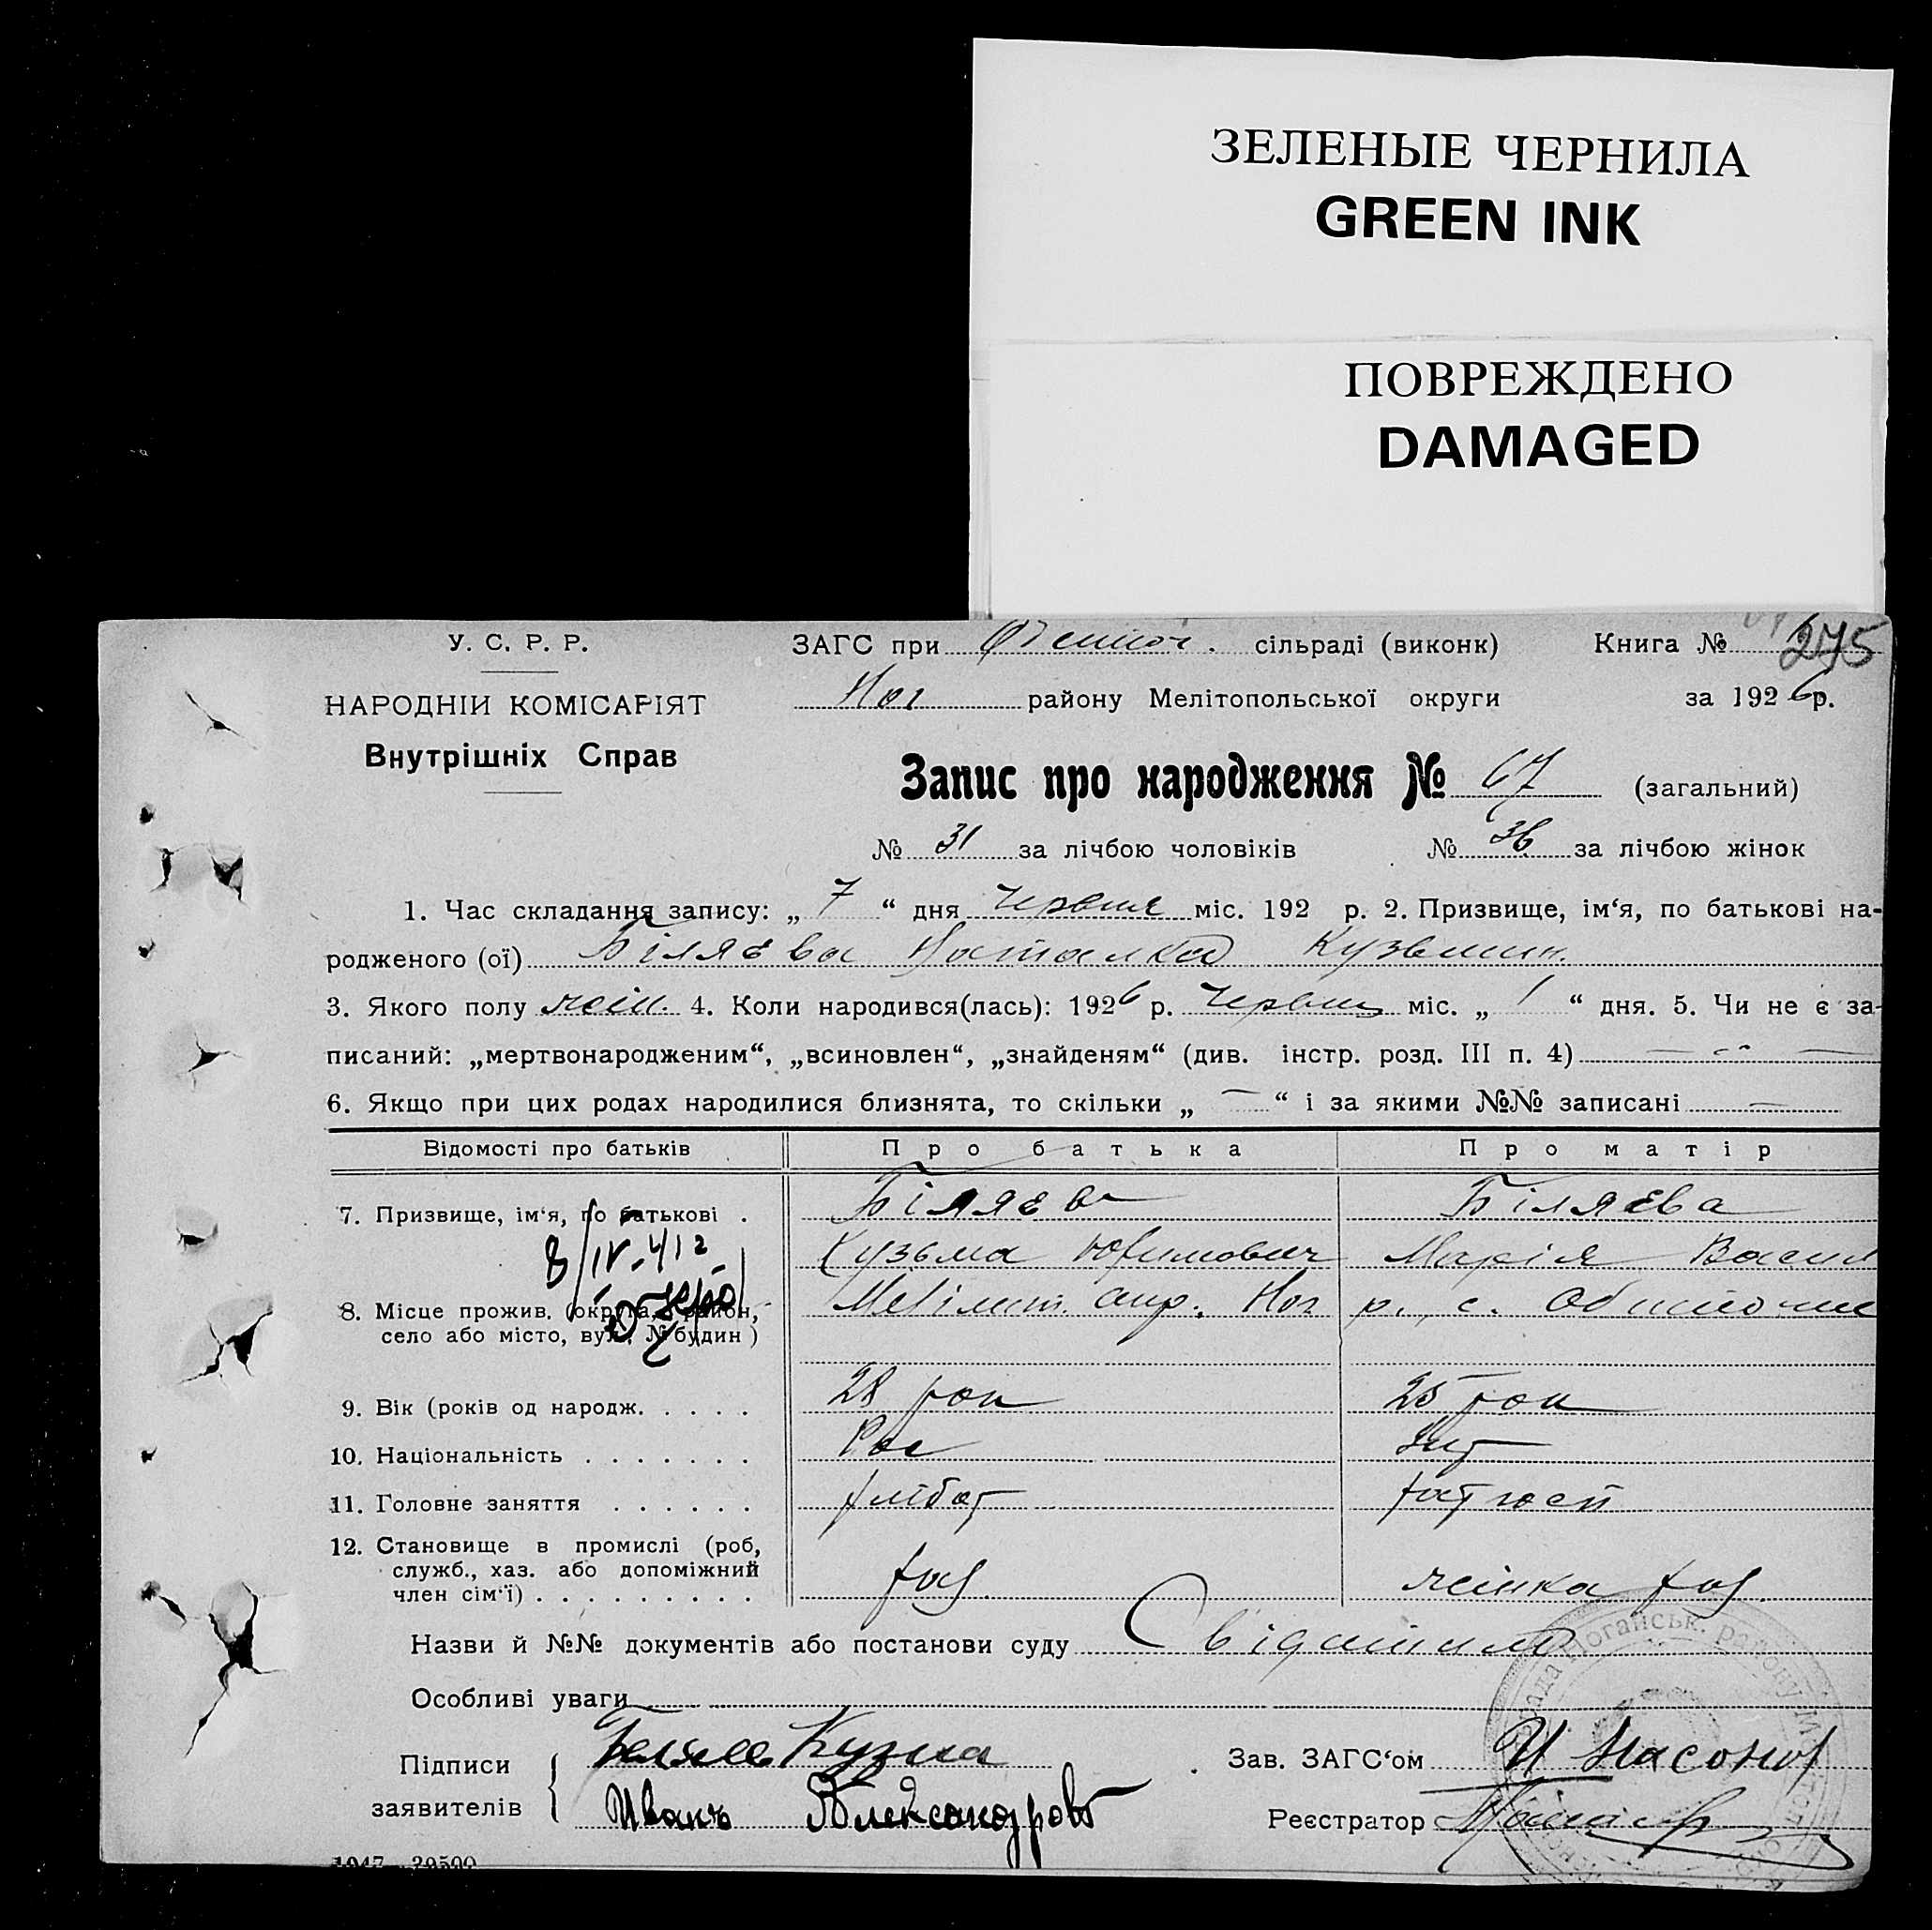 ЗЕЛЕНЫЕ ЧЕРНИЛА
GREEN INK
ПОВРЕЖДЕНО
DAMAGED
У. С. Р. Р.
НАРОДНІЙ КОМІСАРІЯТ
Внутрішніх Справ
ЗАГС при сільраді (виконк) Книга № 275
Ног району Мелітопольської округи за 1926 р.
Запис про народження № 67 (загальний)
№ 31 за лічбою чоловіків № 36 за лічбою жінок
1. Час складання запису: „ 7 “ дня Червня міс. 192 р. 2. Призвище, ім‘я, по батькові на-
родженого (ої) Біляєва Наталка Кузьмин.
3. Якого полу жін. 4. Коли народився(лась): 1926 р. Червня міс. „ 1 “ дня. 5. Чи не є за-
писаний: „мертвонародженим“, „всиновлен“, „знайденям“ (див. інстр. розд. III п. 4) — —
6. Якщо при цих родах народилися близнята, то скільки „ — “ і за якими №№ записані —
Відомості про батьків Про батька Про матір
7. Призвище, ім‘я, по батькові . Біляєв Біляєва
Кузьма Юхимович Марія Васил
8. Місце прожив. (округа, район, Меліт. окр. Ног р. с. Обиточне
село або місто, вул., № будин)
9. Вік (років од народж. . . . . 28 рок 25 рок
10. Національність . . . . . . . Рос
11. Головне заняття . . . . . . хлібор хатгосп
12. Становище в промислі (роб,
служб., хаз. або допоміжний
член сім‘ї) . . . . . . . . . хаз. жінка хаз.
Назви й №№ документів або постанови суду
Особливі уваги
Підписи
заявителів
Беляев Кузма
Иванъ Александров
Зав. ЗАГС‘ом И Насонов
Реєстратор
1047—20500